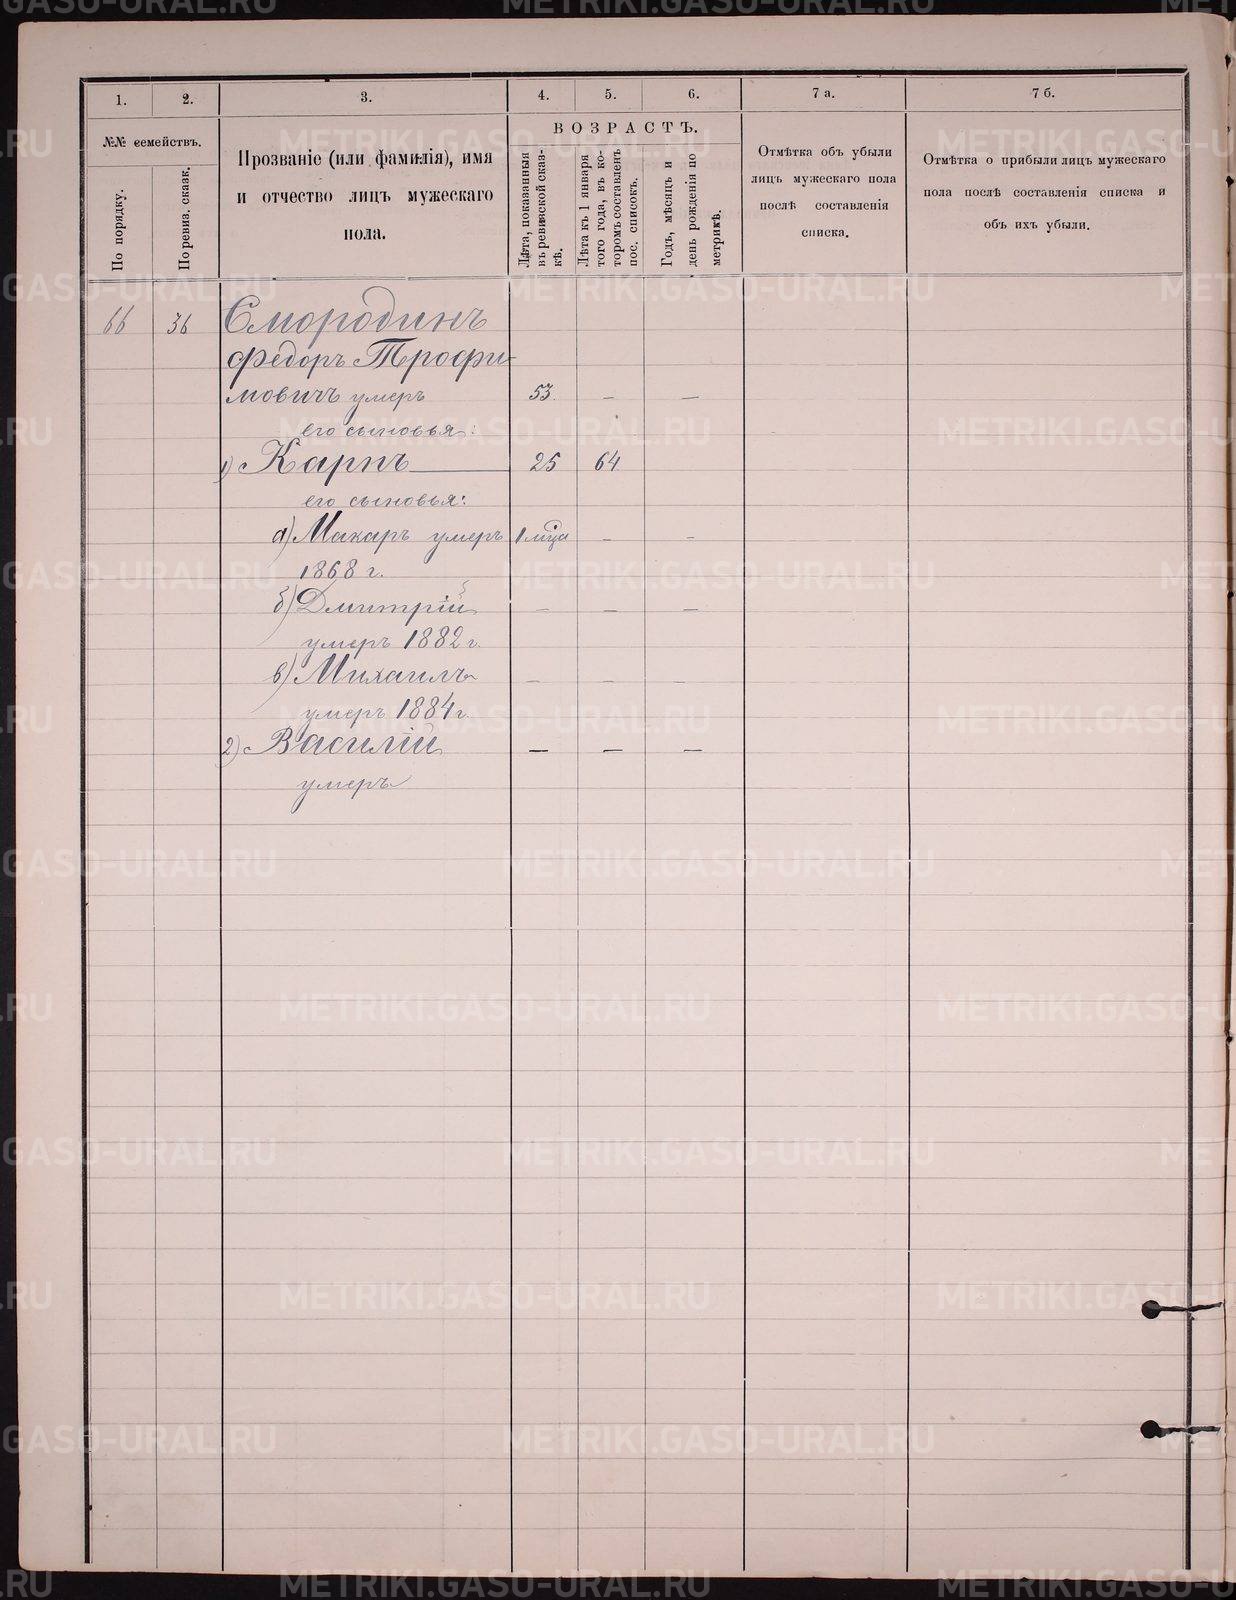 1. 2. 3. 4. 5. 6. 7 а. 7 б.
№№ семействъ.
По порядку.
По ревиз. сказк.
Прозваніе (или фамилія), имя
и отчество лицъ мужескаго
пола.
ВОЗРАСТЪ.
Лѣта, показанныя
въ ревизской сказ-
кѣ.
Лѣта къ 1 января
того года, въ ко-
торомъ составленъ
пос. списокъ.
Годъ, мѣсяцъ и
день рожденія по
метрикѣ.
Отмѣтка объ убыли
лицъ мужескаго пола
послѣ составленія
списка.
Отмѣтка о прибыли лицъ мужескаго
пола послѣ составленія списка и
объ ихъ убыли.
66 36 Смородинъ
Федоръ Трофи-
мовичъ умеръ 53. — —
его сыновья:
1) Карпъ 25 64
его сыновья:
а) Макаръ умеръ 1 мца — —
1868 г.
б) Дмитрій — — —
умеръ 1882 г.
в) Михаилъ — — —
умеръ 1884 г.
2) Василій — — —
умеръ
METRIKI.GASO-URAL.RU